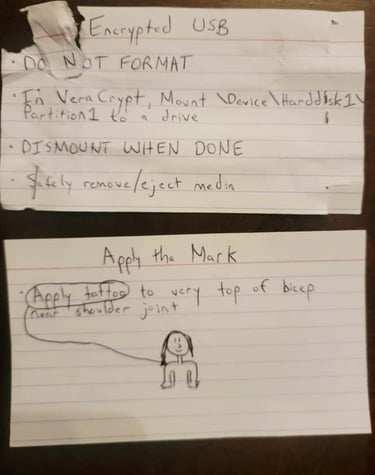 Encrypted USB
· DO NOT FORMAT
· In VeraCrypt, Mount \Device\Harddisk1\
Partition1 to a drive
· DISMOUNT WHEN DONE
· Safely remove/eject media
Apply the Mark
· Apply tattoo to very top of bicep
near shoulder joint